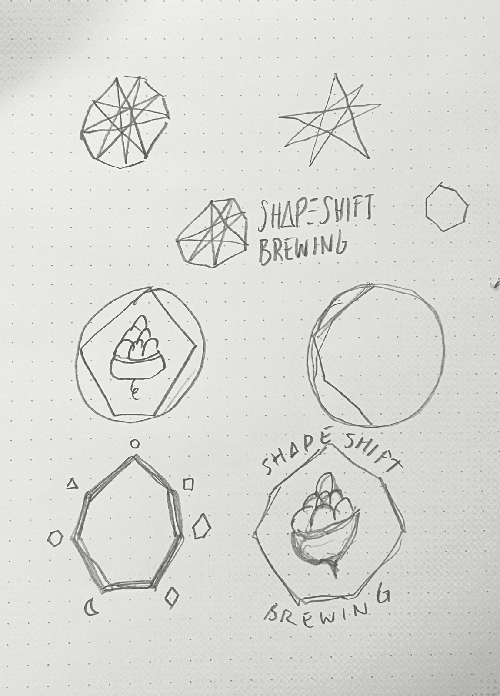 SHAPESHIFT
BREWING
SHAPE SHIFT
BREWING